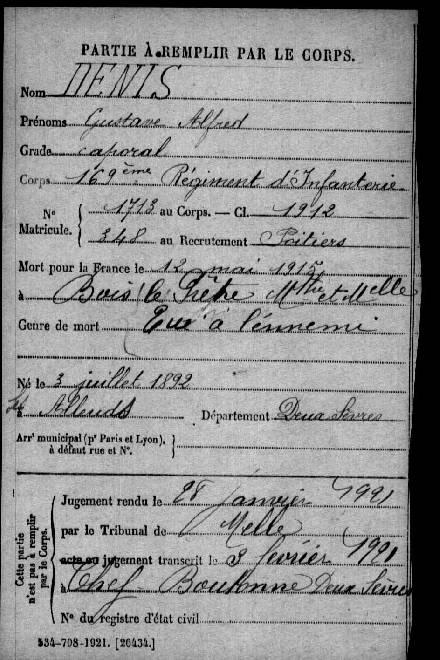 PARTIE À REMPLIR PAR LE CORPS.
Nom DENIS
Prénoms Gustave Alfred
Grade caporal
Corps 169ème Régiment d'Infanterie
N° Matricule. { 1713 au Corps. — Cl. 1912
348 au Recrutement Poitiers
Mort pour la France le 12 mai 1915
à Bois le Prêtre Mthe et Melle
Genre de mort Tué à l'ennemi
Né le 3 juillet 1892
à Alleuds Département Deux Sèvres
Arr' municipal (p' Paris et Lyon), à défaut rue et N°. }
Cette partie n'est pas à remplir par le Corps.
Jugement rendu le 28 janvier 1921
par le Tribunal de Melle
acte ou jugement transcrit le 3 février 1921
à Chef Boutonne Deux Sèvres
N° du registre d'état civil
534-708-1921. [26434.]